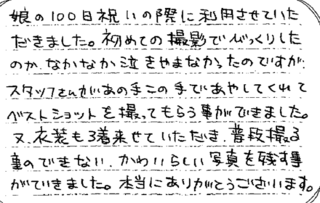 娘の100日祝いの際に利用させていた
だきました。初めての撮影でびっくりした
のか、なかなか泣きやまなかったのですが、
スタッフさんがあの手この手であやしてくれて
ベストショットを撮ってもらう事ができました。
又、衣装も3着来せていただき、普段撮る
事のできない、かわいらしい写真を残す事
ができました。本当にありがとうございます。